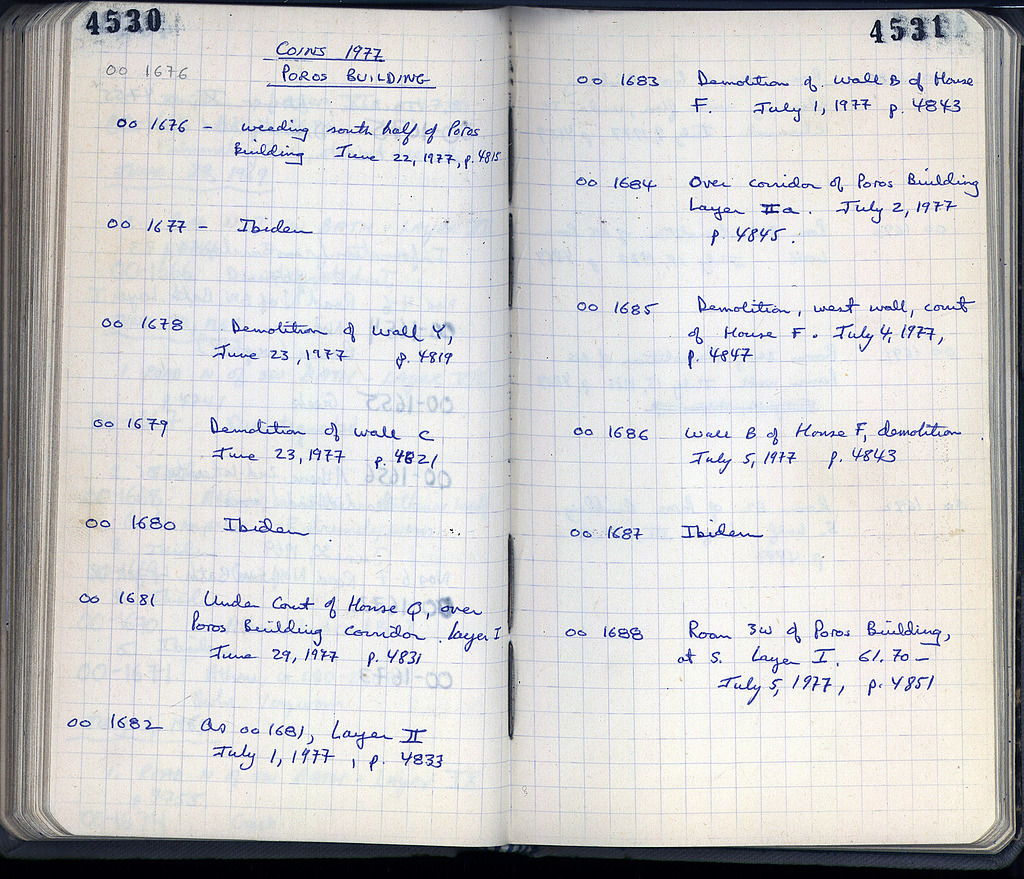 4530
COINS 1977
POROS BUILDING
OO 1676
OO 1676 - weeding south half of Poros
Building June 22, 1977, p. 4815
OO 1677 - Ibidem
OO 1678 Demolition of Wall Y,
June 23, 1977 p. 4819
OO 1679 Demolition of wall C
June 23, 1977 p. 4821
OO 1680 Ibidem
OO 1681 Under Court of House Q, over
Poros Building corridor. Layer I
June 29, 1977 p. 4831
OO 1682 As OO 1681, Layer II
July 1, 1977, p. 4833
4531
OO 1683 Demolition of wall B of House
F. July 1, 1977 p. 4843
OO 1684 Over corridor of Poros Building
Layer IIa. July 2, 1977
p. 4845.
OO 1685 Demolition, west wall, court
of House F. July 4, 1977,
p. 4847
OO 1686 Wall B of House F, demolition
July 5, 1977 p. 4843
OO 1687 Ibidem
OO 1688 Room 3W of Poros Building,
at S. Layer I. 61.70 -
July 5, 1977, p. 4851